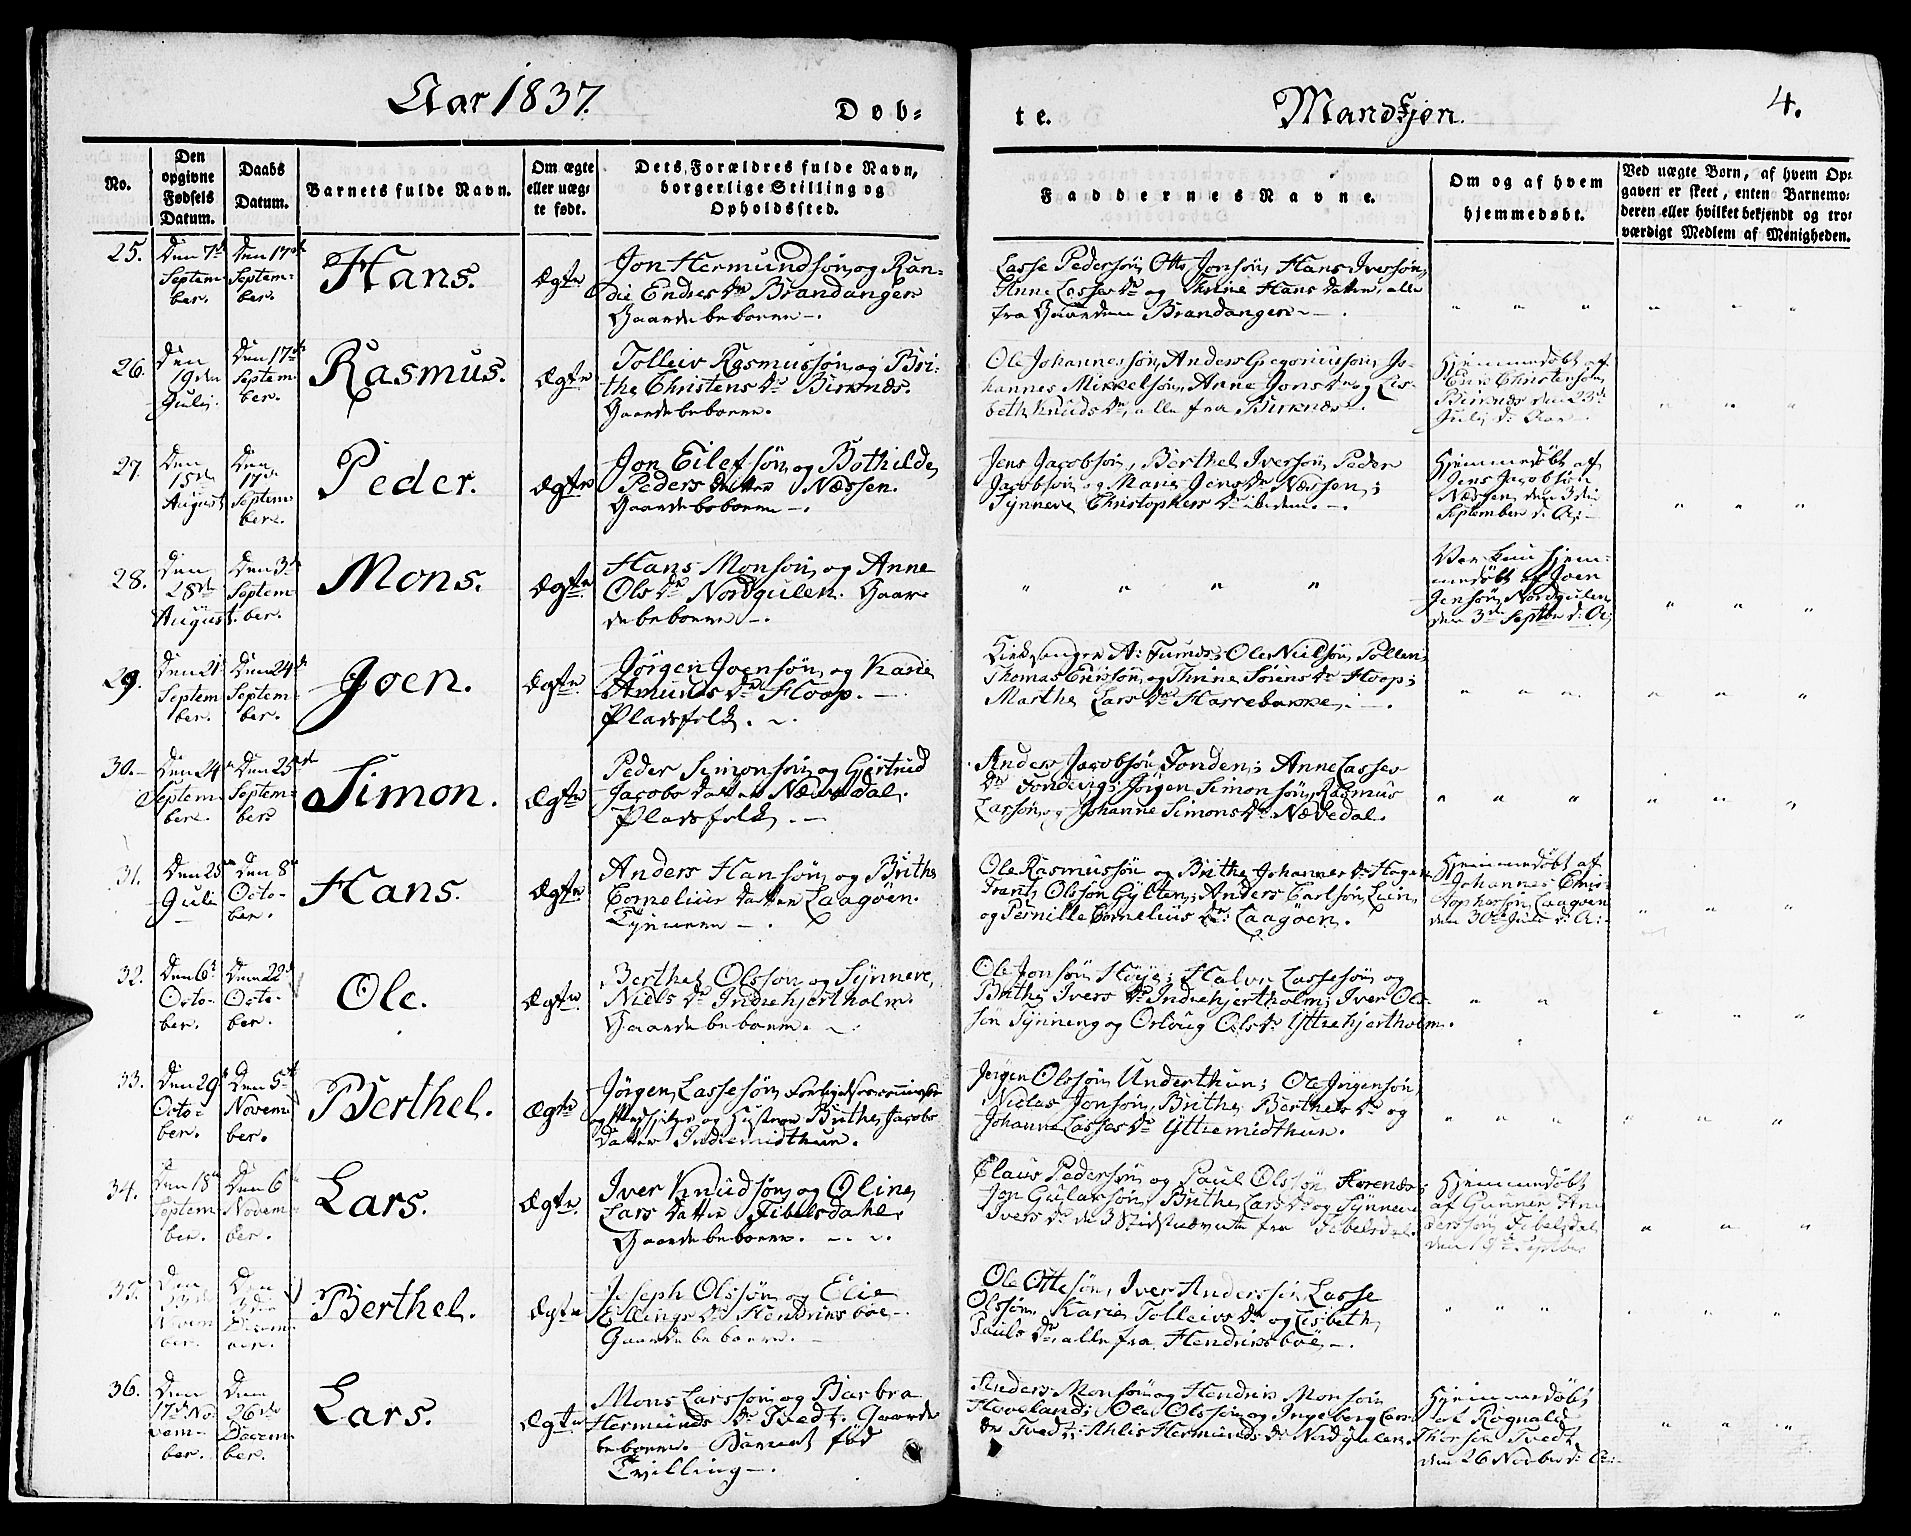 Aar 1837.
Døb=
te.
Mandkjøn.
4.
No.
Den
opgivne
Fødsels
Datum.
Daabs
Datum.
Barnets fulde Navn.
Om ægte
eller uæg-
te født.
Dets Forældres fulde Navn,
borgerlige Stilling og
Opholdssted.
Faddernes Navne.
Om og af hvem
hjemmedøbt.
Ved uægte Børn, af hvem Op-
gaven er skeet, enten Barnemo-
deren eller hvilket bekjendt og tro-
værdigt Medlem af Menigheden.
25.
Den 7de
Septem-
ber.
Den 17de
Septem-
ber.
Hans.
Ægte
Jon Hermundsøn og Ran-
die Endresdr Brandangen
Gaardbeboere.
Lasse Pedersøn, Otto Jonsøn, Hans Iversøn,
Anne Lassesdr og Thrine Hansdatter, alle
fra Gaarden Brandangen.
26.
Den
19den
Julij.
Den 17de
Septem-
ber.
Rasmus.
Ægte
Tolleiv Rasmussøn og Bri-
the Christensdr Birknæs.
Gaardbeboere.
Ole Johannessøn, Anders Gregoriussøn, Jo-
hannes Mikkelsøn, Anne Jonsdr og Lis-
beth Knudsdr, alle fra Birknæs.
Hjemmedøbt af
Christensøn
Birknæs den 23de
Julij d: Aar.
27.
Den
15de
August
Den
17de
Septem-
ber.
Peder.
Ægte
Jon Eilefsøn og Bothilde
Pedersdatter Næssen.
Gaardbeboere.
Jens Jacobsøn, Berthel Iversøn, Peder
Jacobsøn og Marie Jensdr Næssen;
Synneve Christophersdr ibidem.
Hjemmedøbt af
Jens Jacobsøn
Næssen den 3die
September d: A:
28.
Den
28de
August.
Den 3de
Septem-
ber.
Mons.
Ægte
Hans Monsøn og Anne
Olsdr Nordgulen. Gaar-
debeboere.
Var kun hjem-
medøbt af Joen
Jensøn Nordgulen
den 3de Septbr d: A:
29.
Den 21de
Septem-
ber.
Den 24de
Septem-
ber.
Joen.
Ægte
Jørgen Joensøn og Karie
Amundsdr Hoop.
Pladsfolk.
Kirkesanger A: Ole Nielsøn
Thomas og Thrine Sørensdr Hoop;
Marthe Larsdr
30.
Den 24de
Septem-
ber.
Den 25de
Septem-
ber.
Simon.
Ægte
Peder Simonsøn og Gjertrud
Jacobsdatter Nævedal.
Pladsfolk.
Anders Jacobsøn; Anne Lasses-
dr Jørgen Simonsøn, Rasmus
Larsøn og Johanne Simonsdr Nævedal.
31.
Den 25de
Juli
Den 8de
Octo-
ber.
Hans.
Ægte
Anders Hansøn og Brithe
Corneliusdatter Laagøen.
Ole Rasmussøn og Brithe Johannesdr
Olssøn Anders Carlsøn
og Pernille Corneliusdr Laagøen.
Hjemmedøbt af
Johannes Chris-
tophersøn Laagøen
den 30te Juli d: A:
32.
Den 6te
Octo-
ber.
Den 22de
Octo-
ber.
Ole.
Ægte
Berthel Olsson og Synneve
Nielsdr Indrehjertholm.
Gaardbeboere.
Ole Jonsøn Høye; Halvor Lassesøn og
Brithe Iversdr Indrehjertholm; Iver Ols-
søn og Olsdr Yttrehjertholm.
33.
Den 29de
Octo-
ber.
Den 5te
Novem-
ber.
Berthel.
Ægte
Jørgen Lassesøn
og og Hustrue Brithe Jacobs
datter Indremidthun.
Jørgen Olssøn Underthun; Ole Jørgensøn,
Niclas Jonsøn, Brithe Berthelsdr og
Johanne Lassesdr Yttremidthun.
34.
Den 18de
Septem-
ber.
Den 6te
Novem-
ber.
Lars.
Ægte
Iver Knudsøn og Oline
Larsdatter Fibelsdahl.
Gaardbeboere.
Claus Pedersøn og Paul Olssøn
Jon Brithe Larsdr og Synneve
Iversdr de 3 Sidstnævnte fra Fibelsdal.
Hjemmedøbt
af Gunner An-
derssøn Fibelsdal
den 19de Septbr
35.
Den
13de
Novem-
ber.
Den
3die
Decem-
ber.
Berthel.
Ægte
Joseph Olssøn og Elie
Ellingsdr Hendriksboe.
Gaardbeboere.
Ole Ottesøn, Iver Anderssøn, Lasse
Olssøn, Karie Tolleivsdr og Lisbeth
Paulsdr, alle fra Hendriksboe.
36.
Den
17de No-
vem-
ber.
Den
26de
Decem-
ber.
Lars.
Ægte
Mons Larssøn og Barbra
Hermundsdr Tvedt. Gaard-
beboere. Barnet fød
Tvilling.
Anders Monsøn og Hendrik Monsøn
Hoveland; Ole Olssøn og Ingeborg Lars-
dr Tvedt; Ahlis Hermundsdr Nordgulen.
Hjemmedøbt
af Rognald
Thorsøn Tvedt
den 26 Novbr d: A: